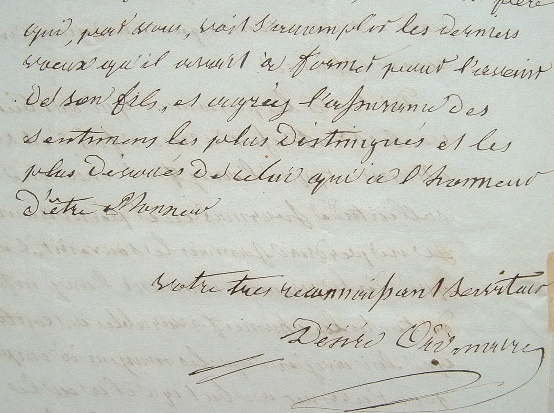 père
qui, par vous, voit s'accomplir les derniers
voeux qu'il avait à former pour l'avenir
de son fils, et agréez l'assurance des
sentimens les plus distingués et les
plus dévoués de celui qui a l'honneur
d'être Monsieur
votre très reconnaissant serviteur
Desiré